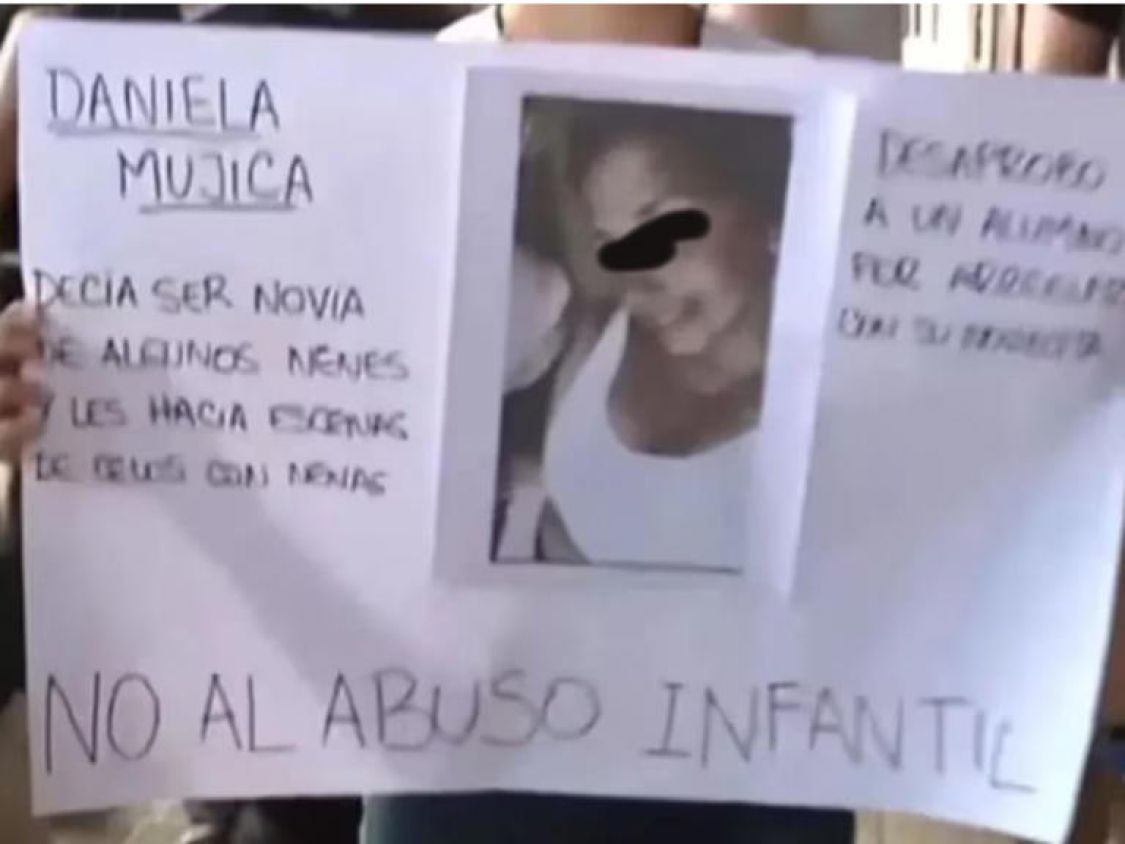 DANIELA
MUJICA
DECIA SER NOVIA
DE ALGUNOS NENES
Y LES HACIA ESCENAS
DE CELOS CON NENAS
DESAPROBO
A UN ALUMNO
POR
CON SU
NO AL ABUSO INFANTIL